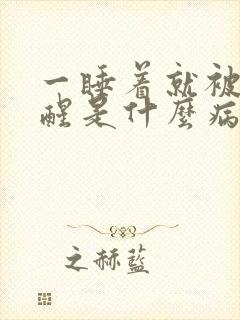 一睡着就被
醒是什麼病
之赫藍